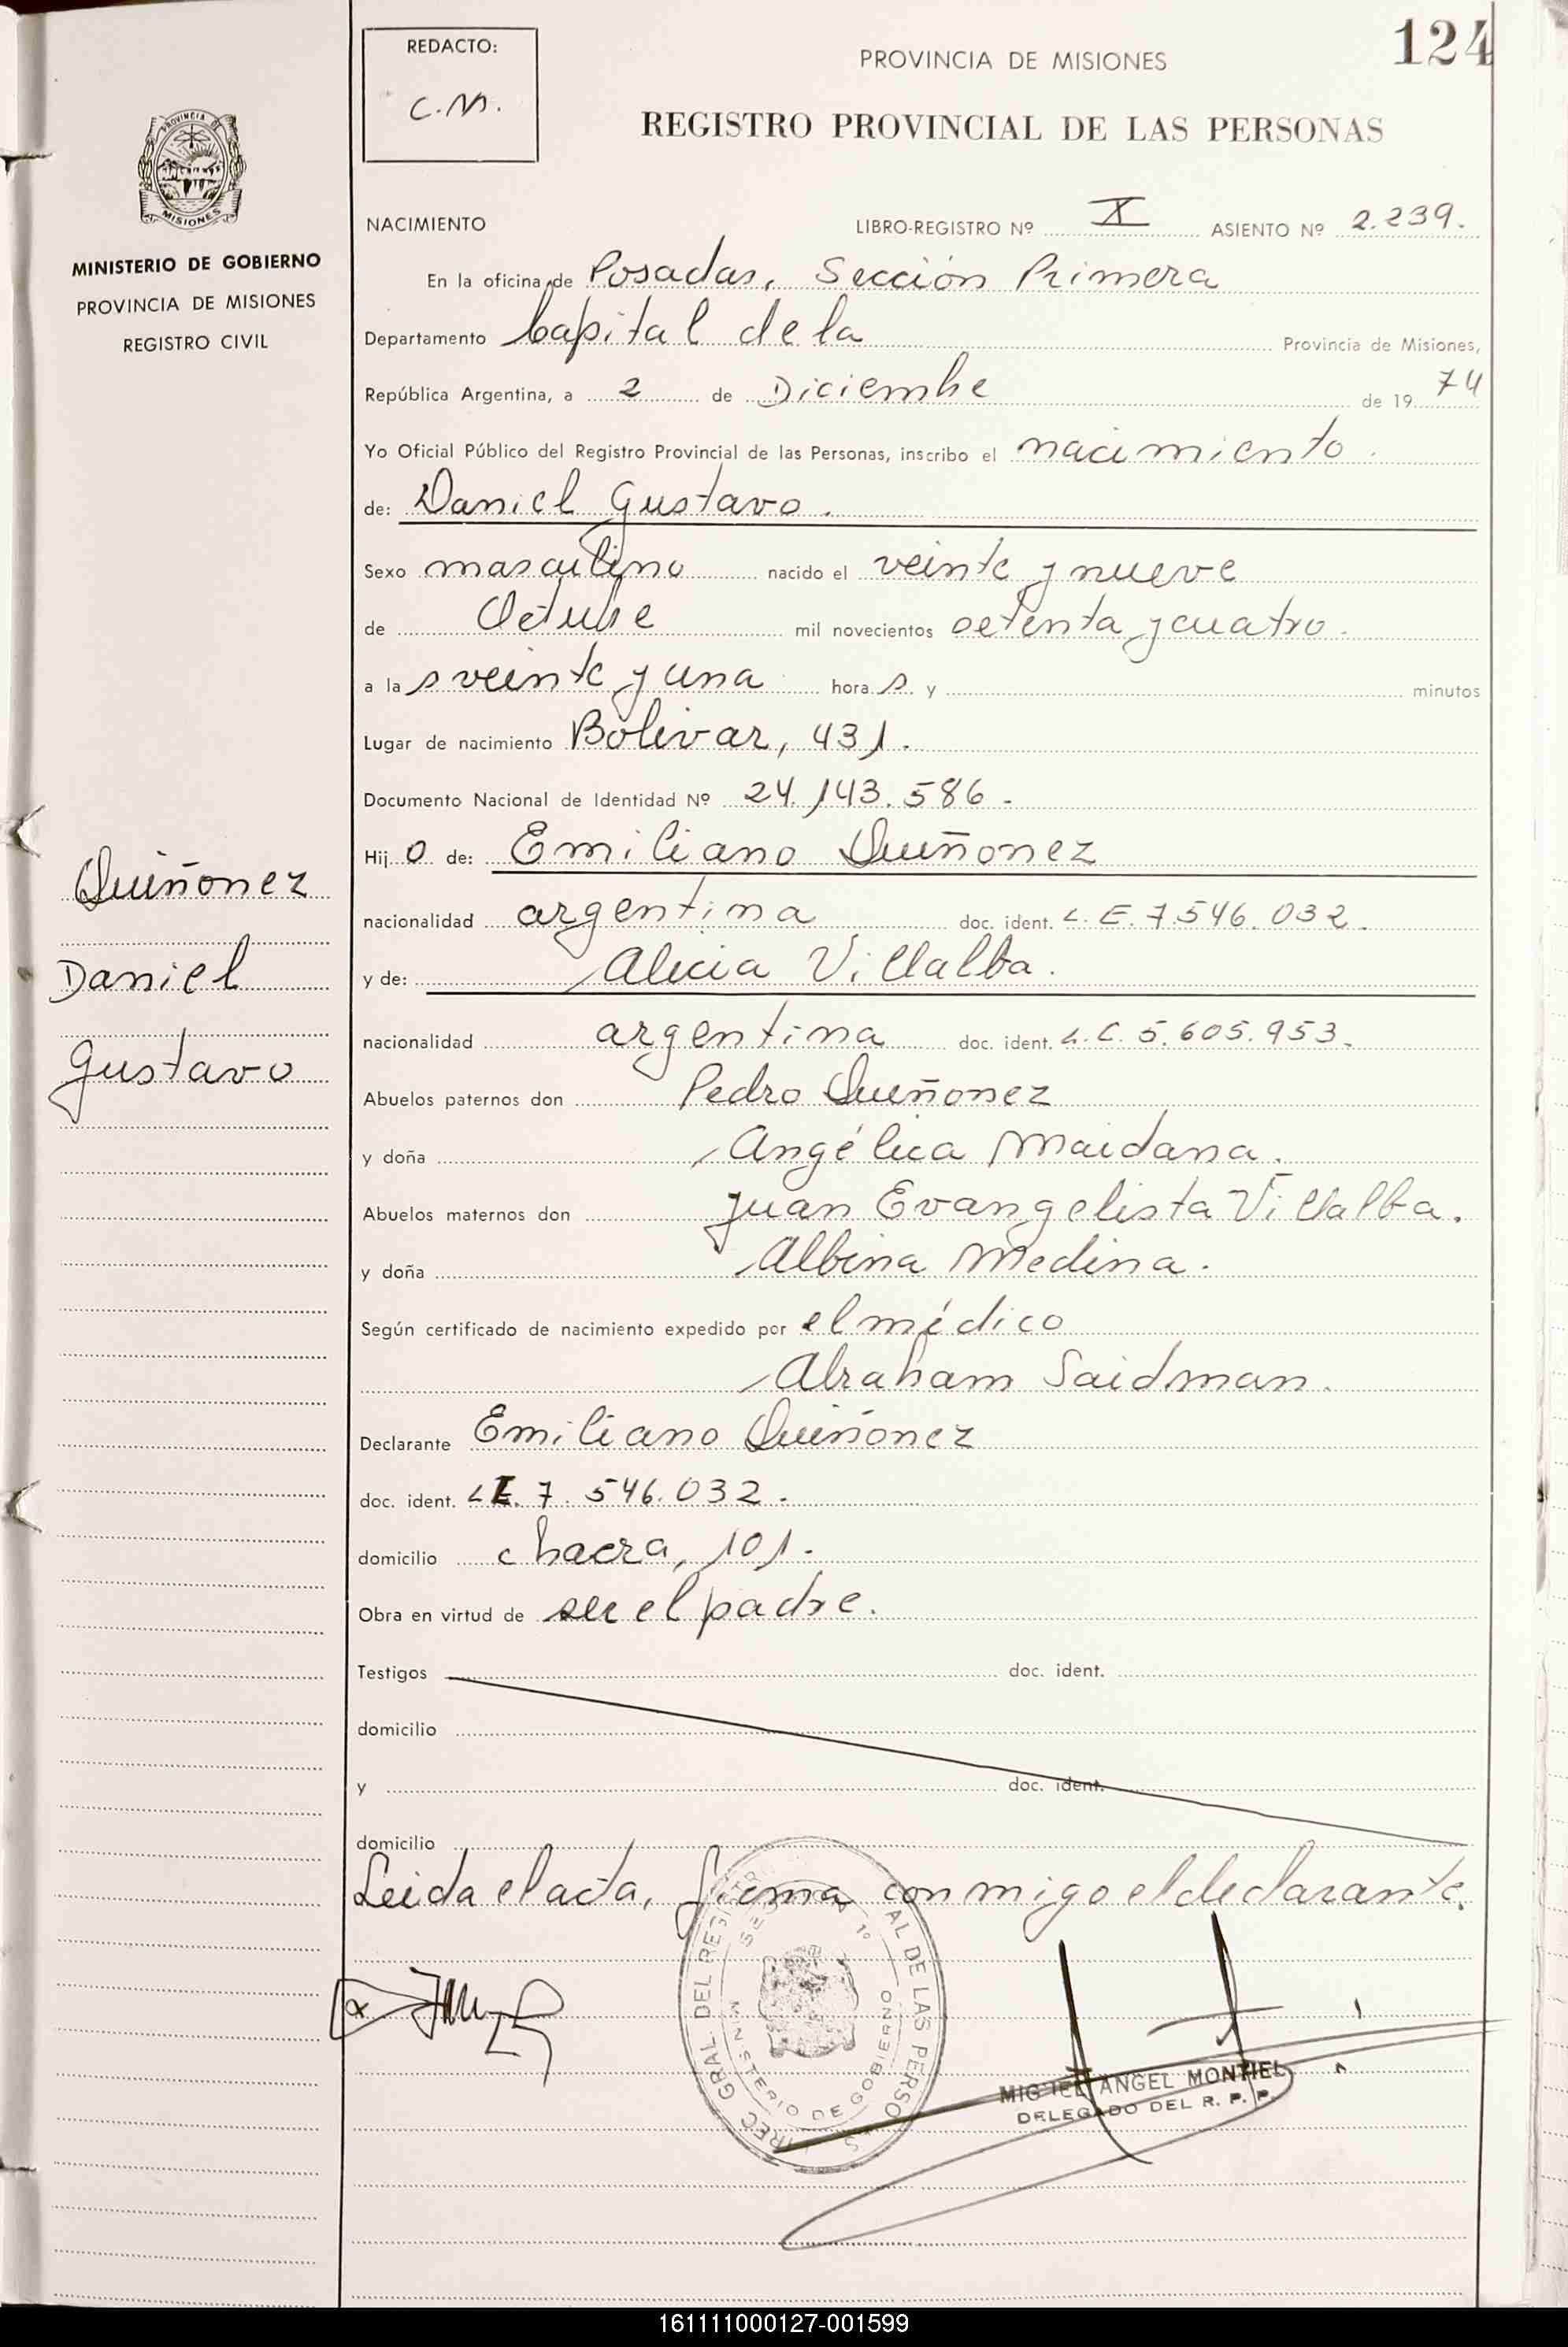 124
REDACTO:
C.M.
PROVINCIA DE MISIONES
REGISTRO PROVINCIAL DE LAS PERSONAS
PROVINCIA DE
MISIONES
MINISTERIO DE GOBIERNO
PROVINCIA DE MISIONES
REGISTRO CIVIL
NACIMIENTO LIBRO-REGISTRO Nº X ASIENTO Nº 2.239.
En la oficina de Posadas, Sección Primera
Departamento Capital de la Provincia de Misiones,
República Argentina, a 2 de Diciembre de 19 74
Yo Oficial Público del Registro Provincial de las Personas, inscribo el nacimiento.
de: Daniel Gustavo.
Sexo masculino nacido el veinte y nueve
de Octubre mil novecientos setenta y cuatro.
a la s veinte y una hora s. y minutos
Lugar de nacimiento Bolivar, 431.
Documento Nacional de Identidad Nº 24.143.586.
Hij o de: Emiliano Quiñonez
nacionalidad argentina doc. ident. L.E. 7.546.032.
y de: Alicia Villalba.
nacionalidad argentina doc. ident. L.C. 5.605.953.
Abuelos paternos don Pedro Quiñonez
y doña Angélica Maidana.
Abuelos maternos don Juan Evangelista Villalba.
y doña Albina Medina.
Según certificado de nacimiento expedido por el médico
Abraham Saidman.
Declarante Emiliano Quiñonez
doc. ident. LE. 7.546.032.
domicilio chacra, 101.
Obra en virtud de ser el padre.
Testigos doc. ident.
domicilio
y doc. ident.
domicilio
Leida el acta, firma conmigo el declarante.
Quiñonez
Daniel
Gustavo
MINISTERIO DE GOBIERNO
MIGUEL ANGEL MONTIEL
DELEGADO DEL R. P. P.
161111000127-001599